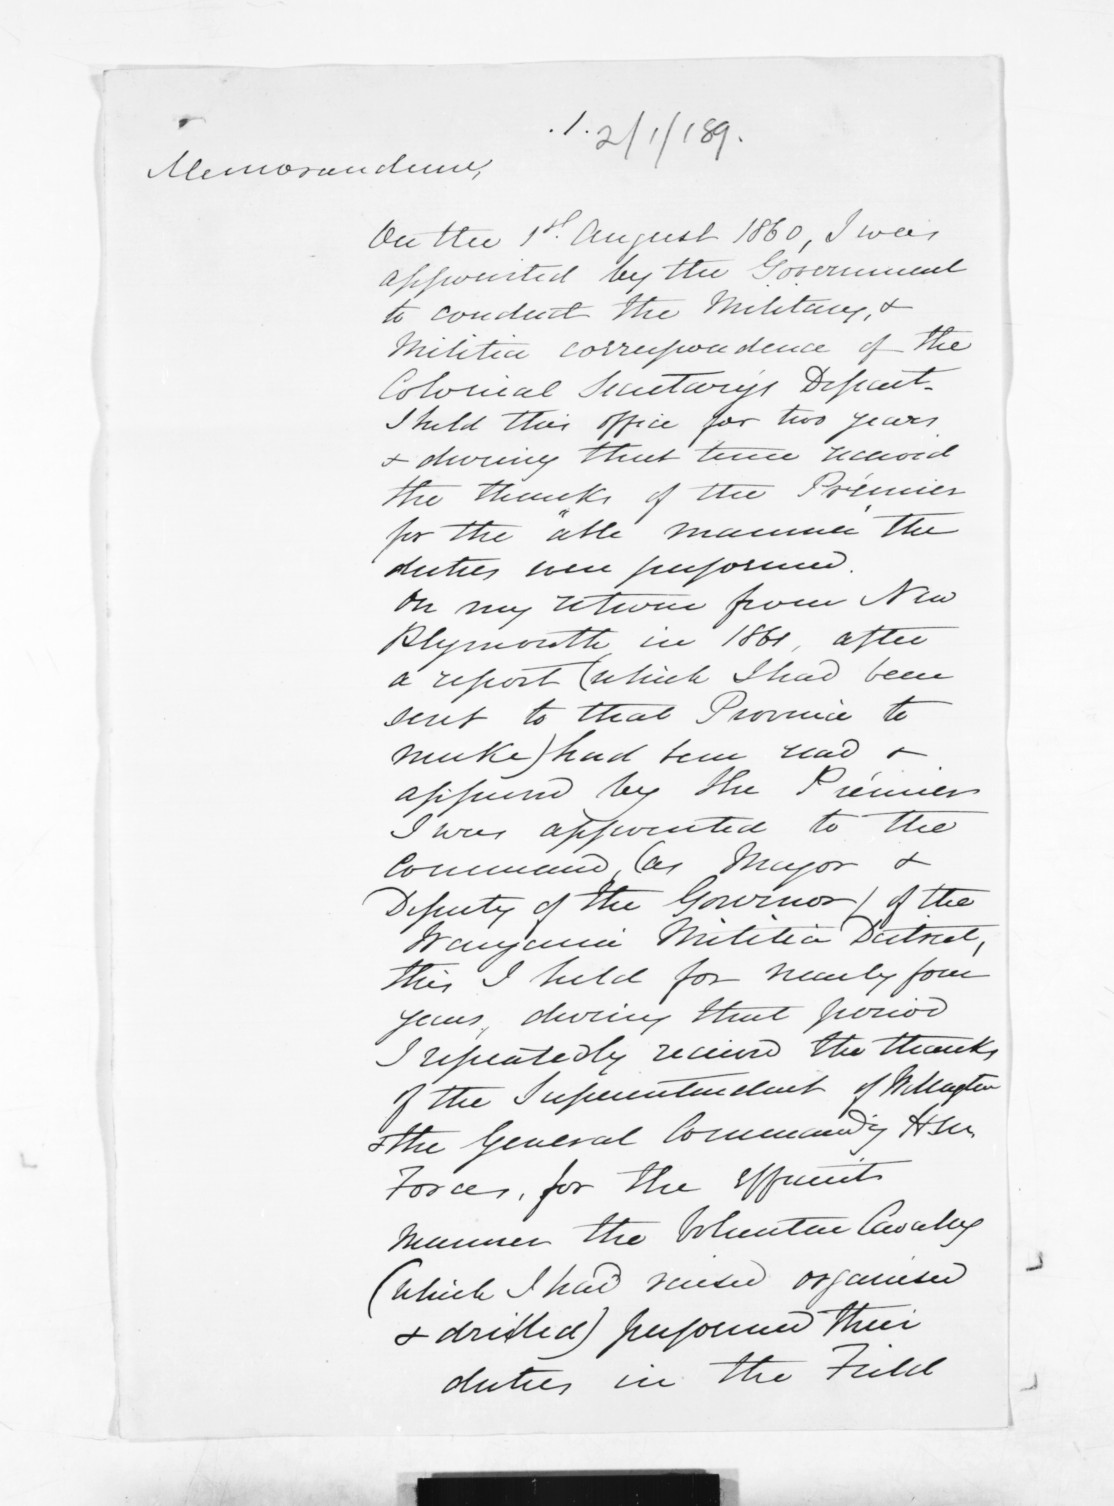 .1. 2/1/189.
Memorandum,
On the 1st. August 1860, I was
appointed by the Government
to conduct the Military, &
Militia correspondence of the
Colonial Secretary's Depart-
I held this office for two years
& during that time received
the thanks of the Premier
for the "able manner" the
duties were performed.
On my return from New
Plymouth in 1861, after
a report (which I had been
sent to that Province to
make) had been read &
approved by the Premier
I was appointed to the
Command, (as Major &
Deputy of the Governor) of the
Wanganui Militia District,
this I held for nearly four
years, during that period
I repeatedly received the thanks
of the Superintendent of Wellington
& the General Commandg H.M.
Forces, for the efficient
manner the Volunteer Cavalry
(which I had raised organised
& drilled) performed their
duties in the Field